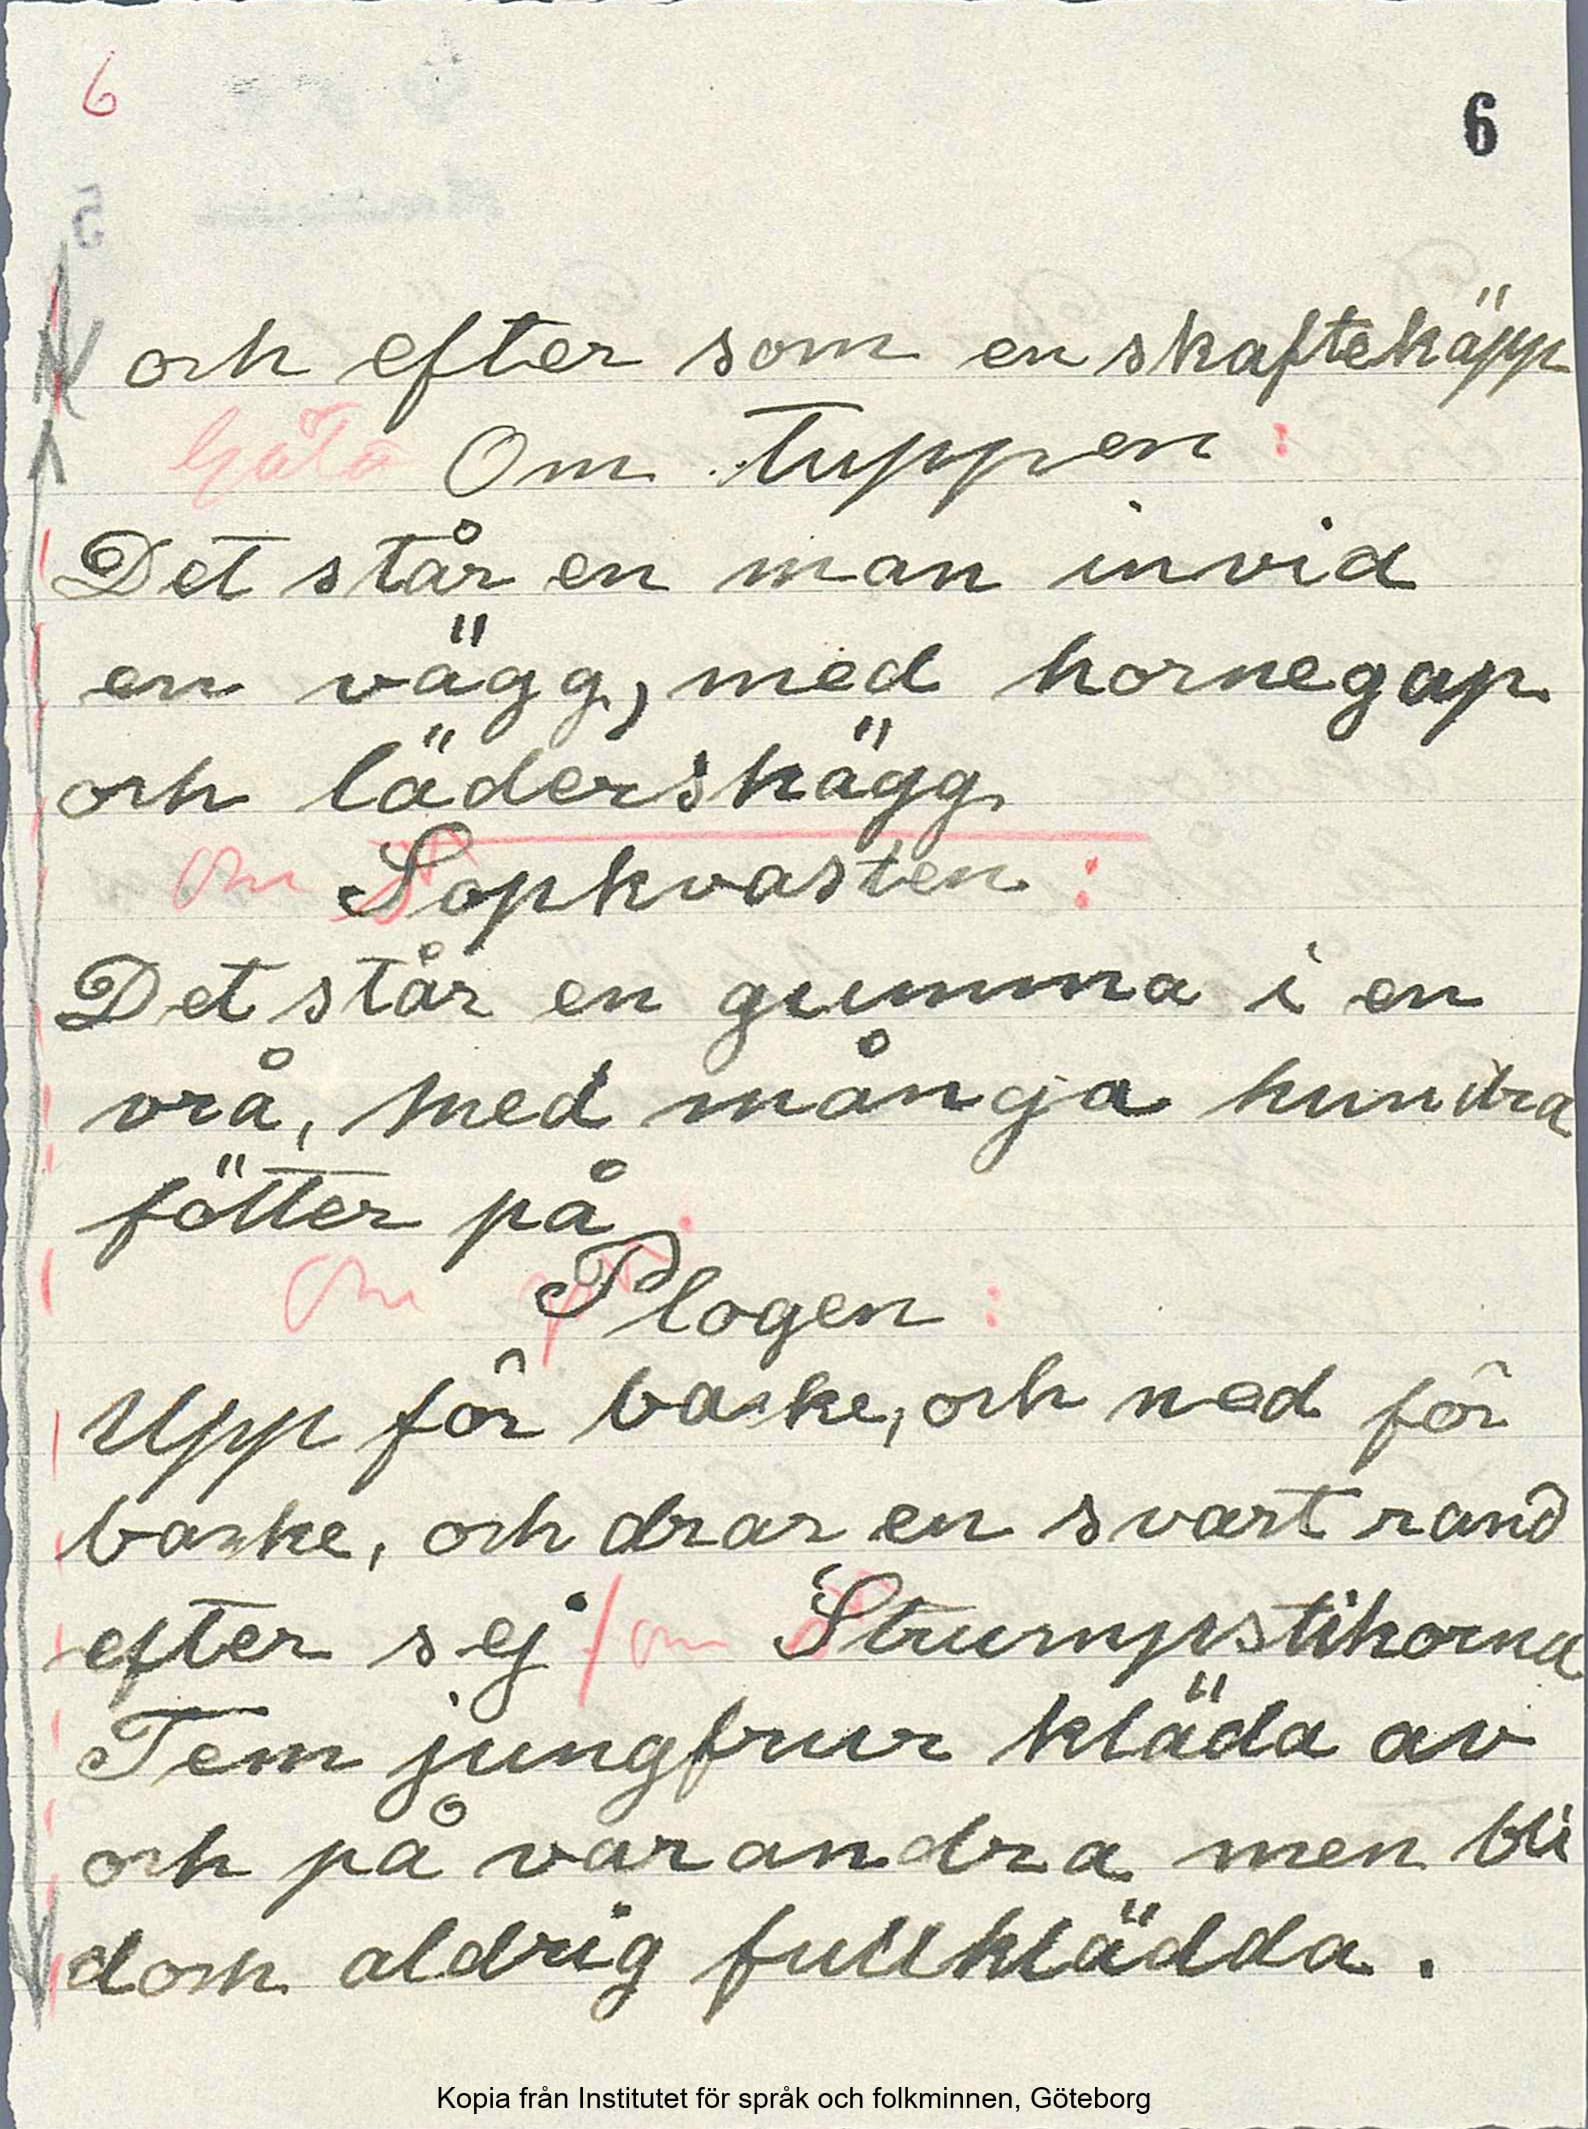 6
6
5
och efter som en skaftekäpp
Gåta Om tuppen:
Det står en man invid
en vägg, med hornegap
och läderskägg
om Sopkvasten:
Det står en gumma i en
vrå, med många hundra
fötter på
Om Plogen:
Upp för backe, och ned för
backe, och drar en svart rand
efter sej / om Strumpstikorna
Fem jungfrur kläda av
och på varandra men bli
dock aldrig fullklädda.
Kopia från Institutet för språk och folkminnen, Göteborg